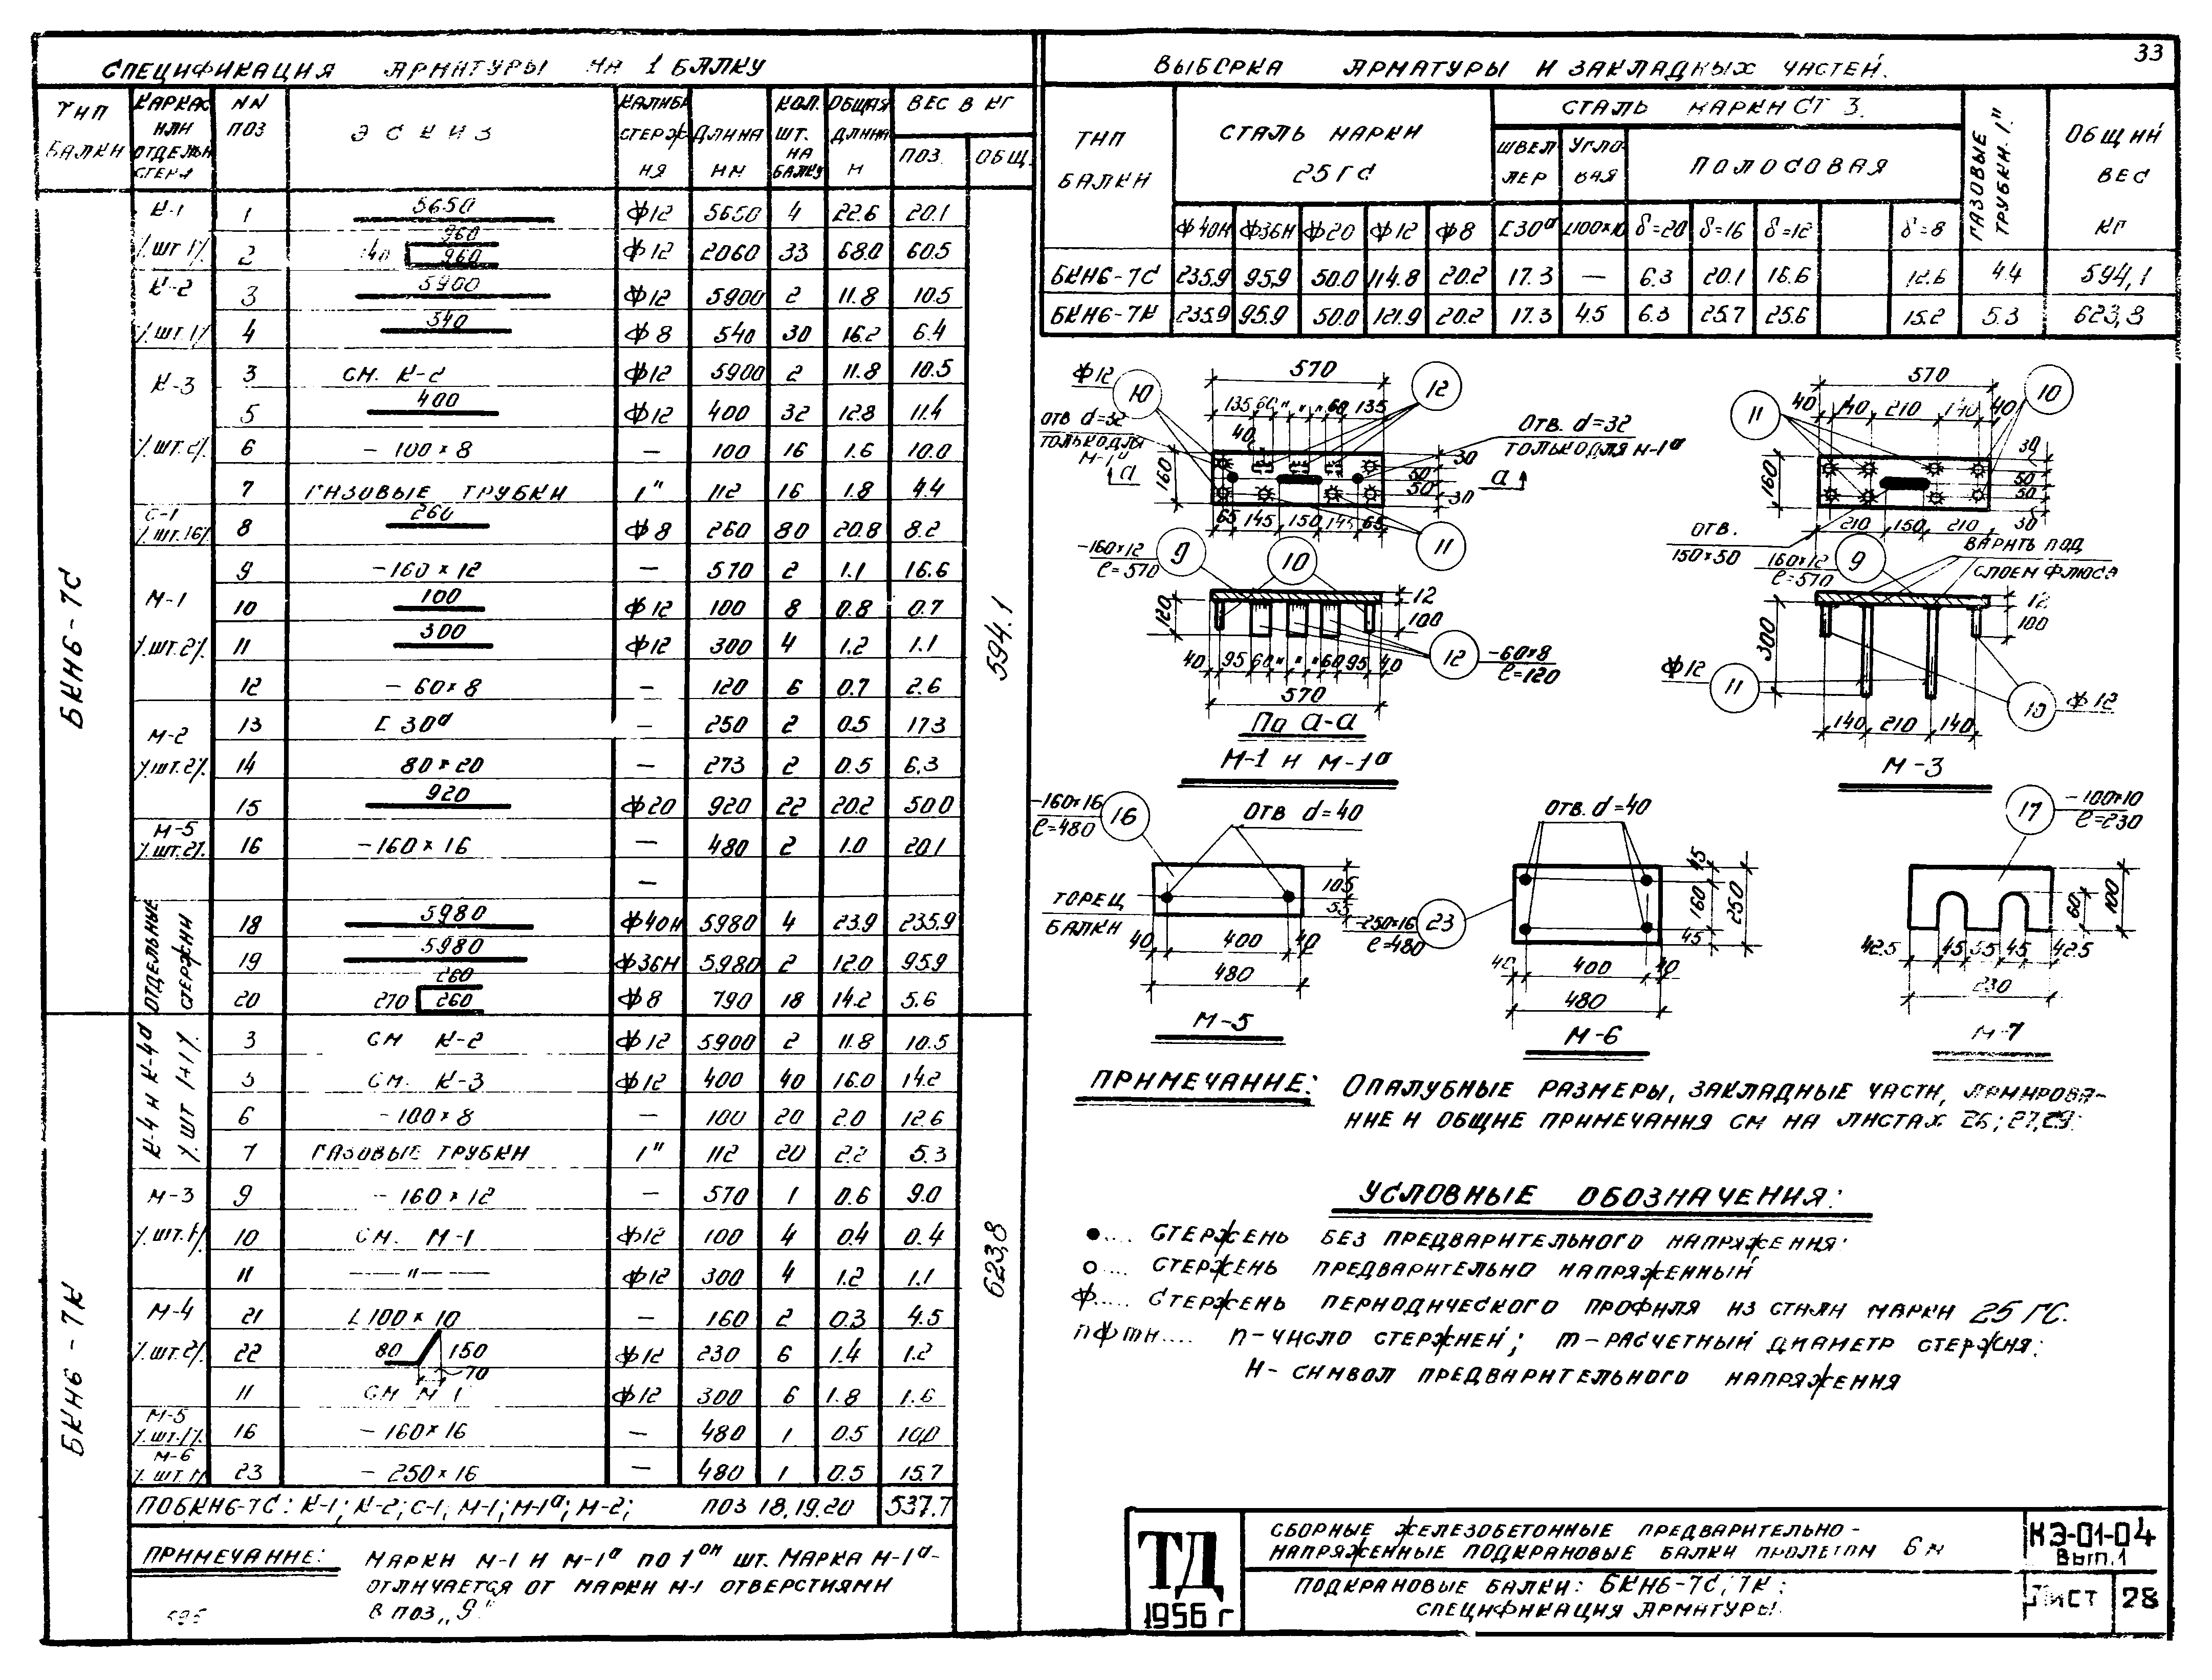 33
СПЕЦИФИКАЦИЯ АРМАТУРЫ НА 1 БАЛКУ
ТИП БАЛКИ | КАРКАС ИЛИ ОТДЕЛЬН СТЕРЖ | NN ПОЗ | ЭСКИЗ | КАЛИБР СТЕРЖНЯ | ДЛИНА ММ | КОЛ. ШТ. НА БАЛКУ | ОБЩАЯ ДЛИНА М | ВЕС В КГ ПОЗ. | ОБЩ.
БКН6-7С
594.1
К-1 /шт 1/
1 | 5650 | ф12 | 5650 | 4 | 22.6 | 20.1
2 | 140 960 960 | ф12 | 2060 | 33 | 68.0 | 60.5
К-2 /шт. 1/
3 | 5900 | ф12 | 5900 | 2 | 11.8 | 10.5
4 | 540 | ф8 | 540 | 30 | 16.2 | 6.4
К-3 /шт. 2/
3 | СМ. К-2 | ф12 | 5900 | 2 | 11.8 | 10.5
5 | 400 | ф12 | 400 | 32 | 12.8 | 11.4
6 | – 100×8 | – | 100 | 16 | 1.6 | 10.0
7 | ГАЗОВЫЕ ТРУБКИ | 1" | 112 | 16 | 1.8 | 4.4
С-1 /шт. 16/
8 | 260 | ф8 | 260 | 80 | 20.8 | 8.2
М-1 /шт. 2/
9 | –160×12 | – | 570 | 2 | 1.1 | 16.6
10 | 100 | ф12 | 100 | 8 | 0.8 | 0.7
11 | 300 | ф12 | 300 | 4 | 1.2 | 1.1
12 | – 60×8 | – | 120 | 6 | 0.7 | 2.6
М-2 /шт. 2/
13 | [ 30а | – | 250 | 2 | 0.5 | 17.3
14 | 80×20 | – | 273 | 2 | 0.5 | 6.3
15 | 920 | ф20 | 920 | 22 | 20.2 | 50.0
М-5 /шт. 2/
16 | –160×16 | – | 480 | 2 | 1.0 | 20.1
–
ОТДЕЛЬНЫЕ СТЕРЖНИ
18 | 5980 | ф40Н | 5980 | 4 | 23.9 | 235.9
19 | 5980 | ф36Н | 5980 | 2 | 12.0 | 95.9
20 | 270 260 260 | ф8 | 790 | 18 | 14.2 | 5.6
БКН6-7К
623,8
К-4 И К-4а /шт 1+1/
3 | СМ К-2 | ф12 | 5900 | 2 | 11.8 | 10.5
5 | СМ. К-3 | ф12 | 400 | 40 | 16.0 | 14.2
6 | –100×8 | – | 100 | 20 | 2.0 | 12.6
7 | ГАЗОВЫЕ ТРУБКИ | 1" | 112 | 20 | 2.2 | 5.3
М-3 /шт. 1/
9 | – 160×12 | – | 570 | 1 | 0.6 | 9.0
10 | СМ. М-1 | ф12 | 100 | 4 | 0.4 | 0.4
11 | — " — | ф12 | 300 | 4 | 1.2 | 1.1
М-4 /шт. 2/
21 | L100×10 | – | 160 | 2 | 0.3 | 4.5
22 | 80 150 70 | ф12 | 230 | 6 | 1.4 | 1.2
11 | СМ М 1 | ф12 | 300 | 6 | 1.8 | 1.6
М-5 /шт. 1/
16 | – 160×16 | – | 480 | 1 | 0.5 | 10.0
М-6 /шт. 1/
23 | – 250×16 | – | 480 | 1 | 0.5 | 15.7
ПОБКН6-7С: К-1; К-2; С-1; М-1; М-1а; М-2; ПОЗ 18.19.20 | 537.7
ПРИМЕЧАНИЕ: МАРКИ М-1 И М-1а ПО 1ой шт. МАРКА М-1а-
ОТЛИЧАЕТСЯ ОТ МАРКИ М-1 ОТВЕРСТИЯМИ
В ПОЗ „9"
ВЫБОРКА АРМАТУРЫ И ЗАКЛАДНЫХ ЧАСТЕЙ.
ТИП БАЛКИ | СТАЛЬ МАРКИ 25ГС | СТАЛЬ МАРКИ СТ 3. | ГАЗОВЫЕ ТРУБКИ. 1" | ОБЩИЙ ВЕС КГ
ШВЕЛЛЕР | УГЛОВАЯ | ПОЛОСОВАЯ
ф40Н | ф36Н | ф20 | ф12 | ф8 | [30а | L100×10 | δ=20 | δ=16 | δ=12 | δ=8
БКН6-7С | 235.9 | 95.9 | 50.0 | 114.8 | 20.2 | 17.3 | – | 6.3 | 20.1 | 16.6 | 12.6 | 4.4 | 594,1
БКН6-7К | 235.9 | 95.9 | 50.0 | 121.9 | 20.2 | 17.3 | 4.5 | 6.3 | 25.7 | 25.6 | 15.2 | 5.3 | 623,8
570
ф12 10 12
135 60 " " " 60 135
ОТВ d=32
ТОЛЬКО ДЛЯ
М-1а
ОТВ. d=32
ТОЛЬКО ДЛЯ М-1а
40
160
30 50 50 30
а а
65 145 150 145 65
11
–160×12
ℓ=570
9 10
120
12
100
12
–60×8
ℓ=120
40 95 60 " " " 60 95 40
570
По а-а
М-1 и М-1а
570
11 10
40 140 210 140 40
160
30 50 50 30
210 150 210
ОТВ.
150×50
160×12
ℓ=570
9
ВАРИТЬ ПОД
СЛОЕМ ФЛЮСА
300
12
100
ф12
11
10
ф12
140 210 140
М-3
–160×16
ℓ=480
16
ОТВ d=40
ТОРЕЦ
БАЛКИ
105
55
40 400 40
480
М-5
ОТВ. d=40
–250×16
ℓ=480
23
45 160 45
250
40 400 40
480
М-6
17
–100×10
ℓ=230
60
100
42.5 45 55 45 42.5
230
М-7
ПРИМЕЧАНИЕ: ОПАЛУБНЫЕ РАЗМЕРЫ, ЗАКЛАДНЫЕ ЧАСТИ, АРМИРОВА-
НИЕ И ОБЩИЕ ПРИМЕЧАНИЯ СМ НА ЛИСТАХ 26; 27, 29.
УСЛОВНЫЕ ОБОЗНАЧЕНИЯ:
●.... СТЕРЖЕНЬ БЕЗ ПРЕДВАРИТЕЛЬНОГО НАПРЯЖЕНИЯ:
○.... СТЕРЖЕНЬ ПРЕДВАРИТЕЛЬНО НАПРЯЖЕННЫЙ
ф..... СТЕРЖЕНЬ ПЕРИОДИЧЕСКОГО ПРОФИЛЯ ИЗ СТАЛИ МАРКИ 25 ГС.
nфmн.... n-ЧИСЛО СТЕРЖНЕЙ; m-РАСЧЕТНЫЙ ДИАМЕТР СТЕРЖНЯ:
Н- СИМВОЛ ПРЕДВАРИТЕЛЬНОГО НАПРЯЖЕНИЯ
ТД
1956 г
СБОРНЫЕ ЖЕЛЕЗОБЕТОННЫЕ ПРЕДВАРИТЕЛЬНО-
НАПРЯЖЕННЫЕ ПОДКРАНОВЫЕ БАЛКИ ПРОЛЕТОМ 6 м
ПОДКРАНОВЫЕ БАЛКИ: БКН6-7С, 7К;
СПЕЦИФИКАЦИЯ АРМАТУРЫ.
КЭ-01-04
Вып.1
Лист 28